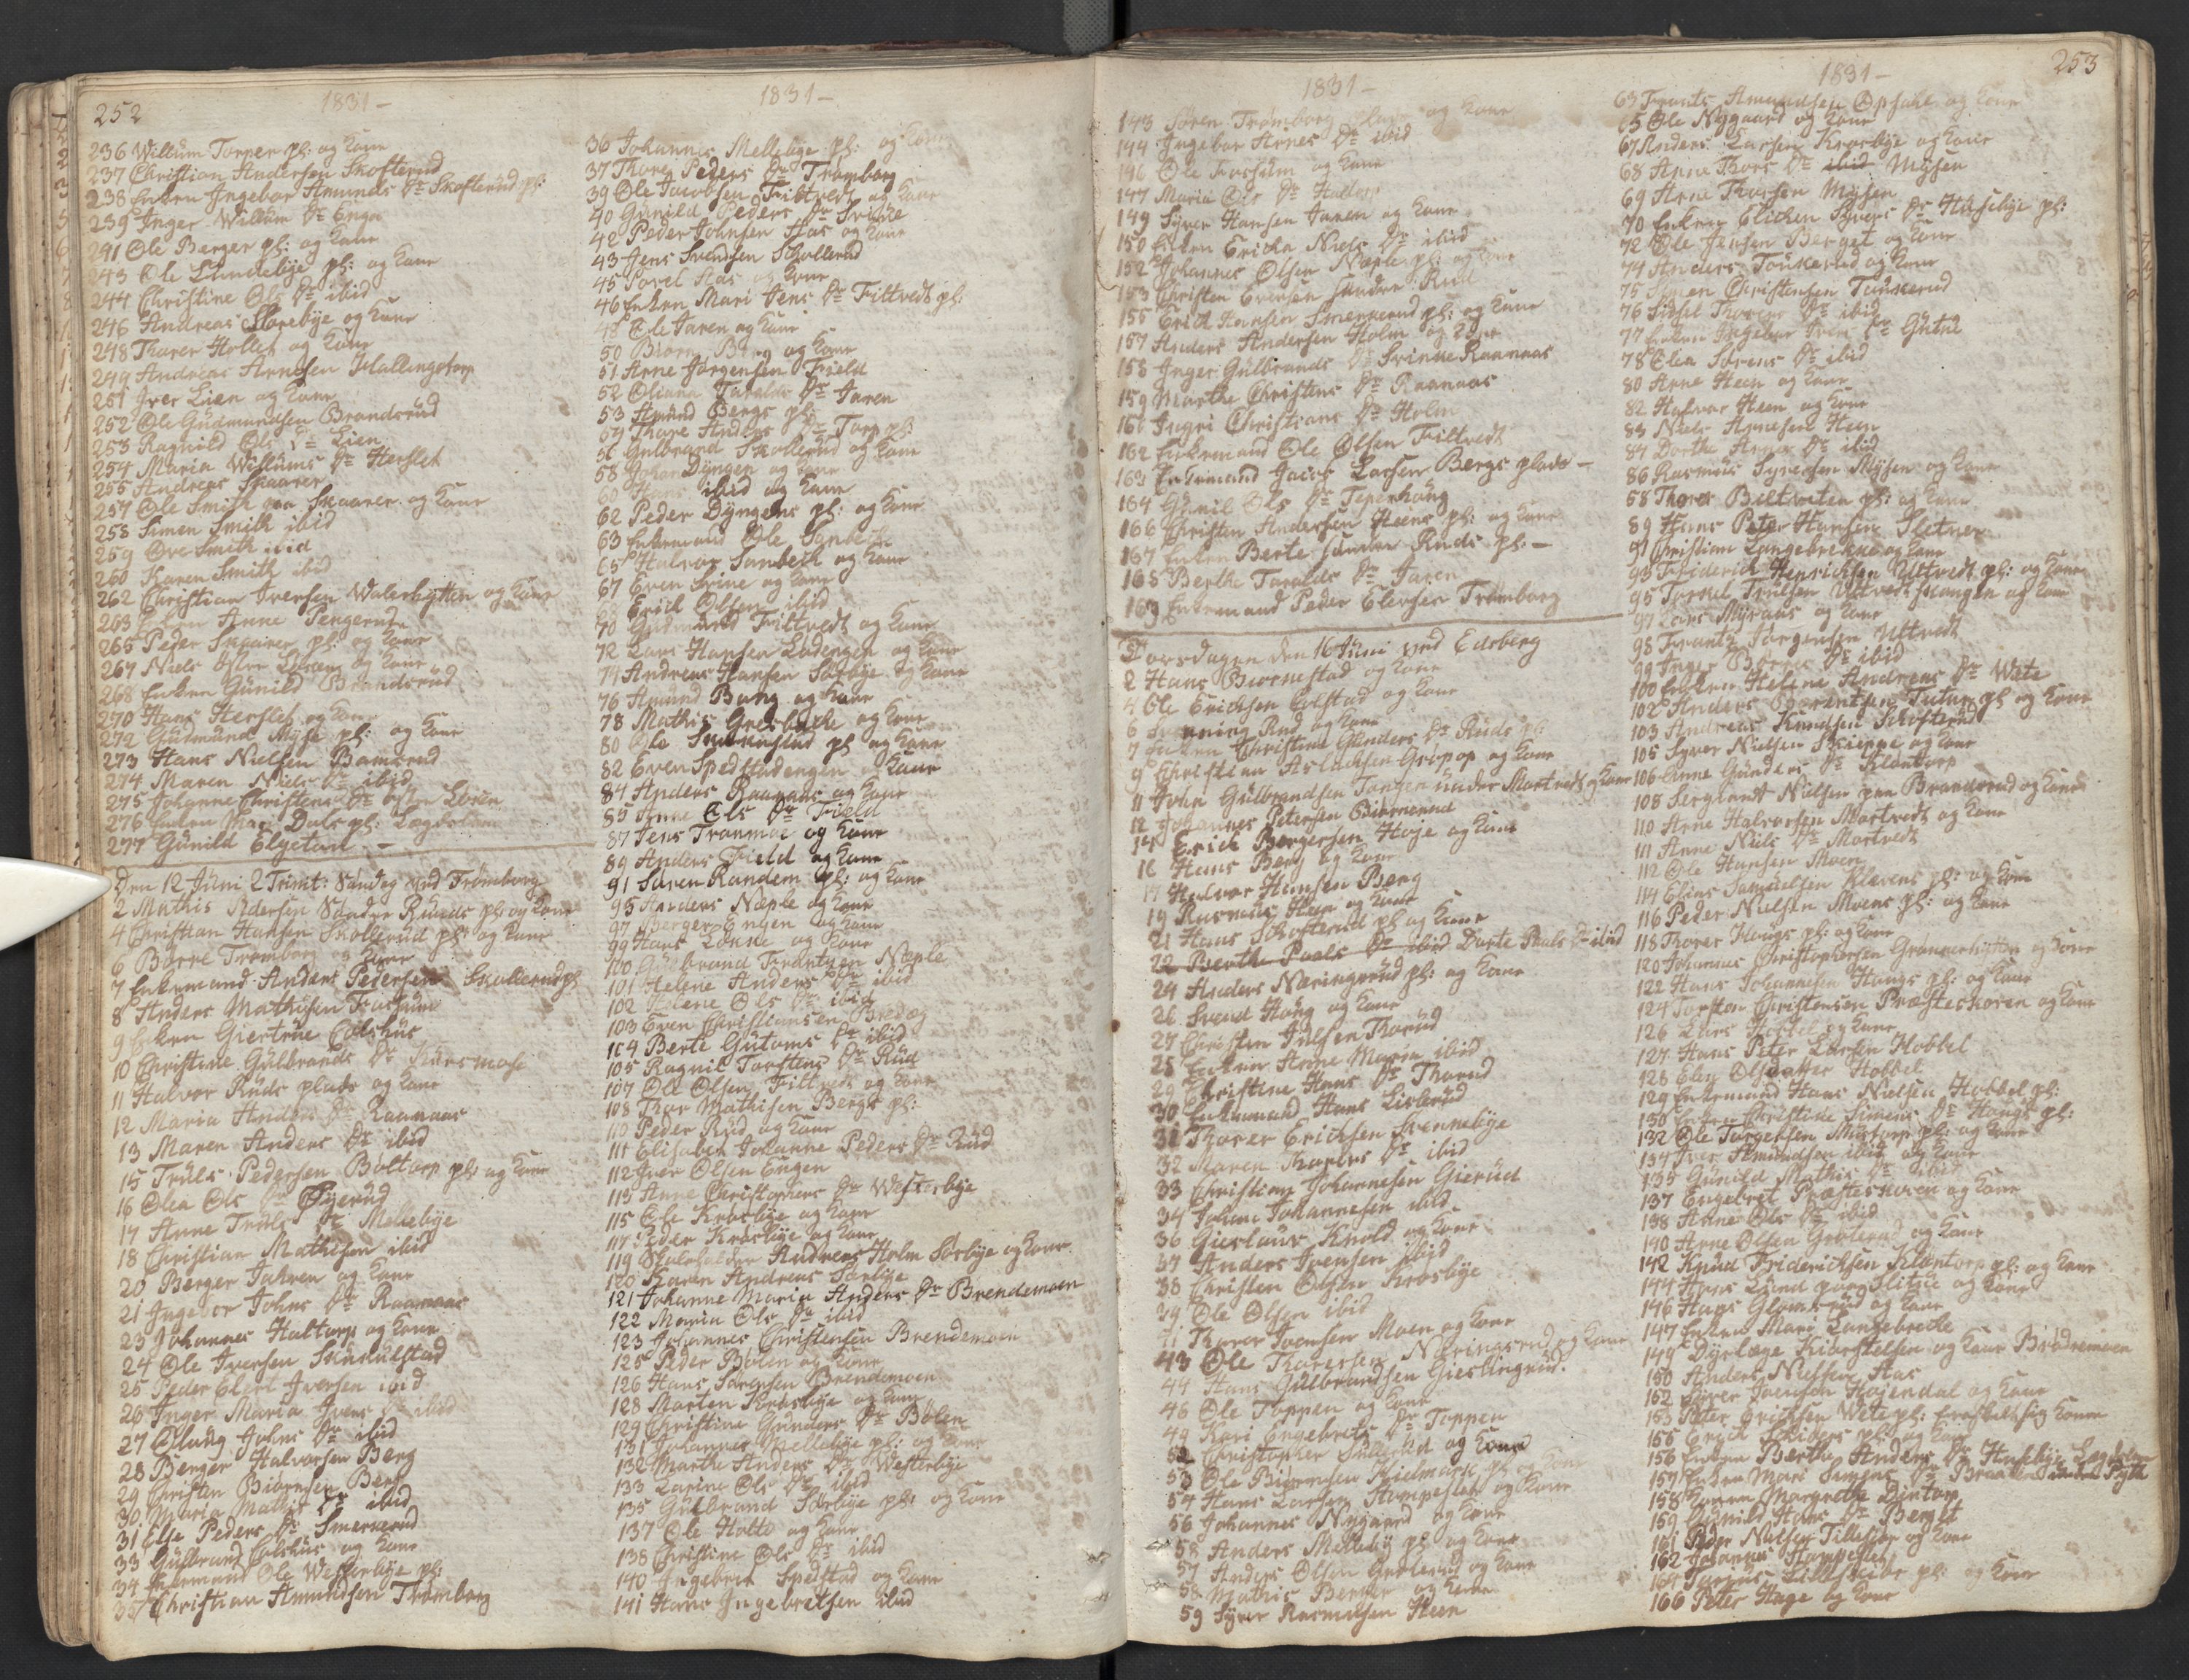 252
1831-
236 Willum Torper pl: og Kone
237 Christian Andersen Skofterud
238 Enken Ingebor Amunds Dr Skofterud pl:
239 Inger Willum Dr Enge
241 Ole Berger pl: og Kone
243 Ole Lundebye pl: og Kone
244 Christine Ols Dr ibid
246 Andreas Slorebye og Kone
248 Thorer Hollet og Kone
249 Andreas Arnesen Hallingstorp
251 Iver Lien og Kone
252 Ole Gudmundsen Brandsrud
253 Ragnild Ols Dr Lien
254 Maria Willums Dr Herslet
255 Andreas Skaarer
257 Ole Smith paa Skaarer og Kone
258 Simen Smith ibid
259 Ove Smith ibid
260 Karen Smith ibid
262 Christian Iversen Walerhytten og Kone
263 Enken Anne Pengerud
265 Peder Skaarer pl: og Kone
267 Niels Løren og Kone
268 Enken Gunild Brandsrud
270 Hans Herslet og Kone
272 Gudmund Myse pl: og Kone
273 Hans Nielsen Bamsrud
274 Maren Niels Dr ibid
275 Johanne Christens Dr Løren
276 Enken Mari Dals pl: Lægdslem
277 Gunild Elgetun -
Den 12 Juni 2 Trinit: Søndag ved Trømborg
2 Mathis Pedersen Søndre Ruuds pl: og Kone
4 Christian Hansen Skollerud pl: og Kone
6 Børre Trømborg og Kone
7 Enkemand Anders Pedersen Skollerud pl:
8 Anders Mathisen Fosshum
9 Enken Giertrue Colshus
10 Christine Gulbrands Dr Kuresmose
11 Halvor Ruds plads og Kone
12 Maria Anders Dr Raanaas
13 Maren Anders Dr ibid
15 Truls Pedersen Boltorp pl: og Kone
16 Olea Ols Dr Øyerud
17 Anne Truls Dr Mellebye
18 Christian Mathisen ibid
20 Berger Jahren og Kone
21 Ingebor Johns Dr Raanaas
23 Johannes Haltorp og Kone
24 Ole Iversen Skukulstad
25 Peder Elert Iversen ibid
26 Inger Maria Ivers Dr ibid
27 Oloug Johns Dr ibid
28 Berger Halvorsen Berg
29 Christen Biørnsen Berg
30 Maria Mathis Dr ibid
31 Else Peders Dr Smerkerud
33 Gulbrand Colshus og Kone
34 Enkemand Ole Westerbye pl:
35 Christian Amundsen Trømborg
1831-
36 Johannes Mellebye pl: og Kone
37 Thore Peders Dr Trømborg
39 Ole Jacobsen Filtvedt og Kone
40 Gunild Peders Dr Svinne
42 Peder Johnsen Aas og Kone
43 Jens Svendsen Skollerud
45 Povel Aas og Kone
46 Enken Mari Jens Dr Filtvedt pl:
48 Ole Jaren og Kone
50 Biørn Berg og Kone
51 Arne Jørgensen Field
52 Oliana Taralds Dr Jaren
53 Amund Bergs pl:
54 Thore Anders Dr Torp pl:
56 Gulbrand Skollerud og Kone
58 Johan Dyngen og Kone
60 Hans ibid og Kone
62 Peder Dyngens pl: og Kone
63 Enkemand Ole Sanbech
65 Halvor Sanbech og Kone
67 Even Svine og Kone
68 Erick Olsen ibid
70 Gudmund Filtvedt og Kone
72 Lars Hansen Ladengen og Kone
74 Andreas Hansen Sørbye og Kone
76 Amund Berg og Kone
78 Mathis Greslebøche og Kone
80 Ole pl: og Kone
82 Even Spedstadengen og Kone
84 Anders Raanaas og Kone
85 Anne Ols Dr Field
87 Jens Tranmoe og Kone
89 Anders Field og Kone
91 Søren Randem pl: og Kone
95 Anders Næple og Kone
97 Berger Engen og Kone
99 Hans Lønne og Kone
100 Gulbrand Frantsen Næple
101 Helene Anders Dr ibid
102 Helene Ols Dr ibid
103 Even Christiansen Bredæg
104 Berte Gutoms Dr ibid
105 Ragnil Torstens Dr Rud
107 Ole Olsen Filtvedt og Kone
108 Thor Mathisen Bergs pl:
110 Peder Rud og Kone
111 Elisabet Johanne Peders Dr Rud
112 Iver Olsen Engen
113 Anne Christophers Dr Westerbye
115 Ole Krosbye og Kone
117 Peder Krosbye og Kone
119 Skoleholder Andreas Holm Sørbye og Kone
120 Karen Andreas Sørbye
121 Johanne Maria Anders Dr Brendemoen
122 Maria Ols Dr ibid
123 Johannes Christensen Brendemoen
125 Peder Bølen og Kone
126 Hans Sørensen Brendemoen
128 Morten Krosbye og Kone
129 Christine Gunders Dr Bølen
131 Johannes Mellebye pl: og Kone
132 Marthe Anders Dr Westerbye
133 Karine Ols Dr ibid
135 Gulbrand Sørbye pl: og Kone
137 Ole Holte og Kone
138 Christine Ols Dr ibid
140 Ingebret Spedstad og Kone
141 Hans Ingebretsen ibid
1831-
143 Søren Trømborg plads og Kone
144 Ingebor Arnes Dr ibid
146 Ole Fosshum og Kone
147 Maria Ols Dr
149 Syver Hansen Jaren og Kone
150 Enken Ericka Niels Dr ibid
152 Johannes Olsen Næple pl: og Kone
153 Christen Eversen Søndre Rud
155 Erick Hansen Smerkerud pl: og Kone
157 Anders Andersen Holm og Kone
158 Inger Gulbrands Dr Svinne Raanaas
159 Marthe Christens Dr Raanaas
160 Ingri Christians Dr Holm
162 Enkemand Ole Olsen Filtvedt
163 Enkemand Jacob Larsen Bergs plads -
164 Gunil Ols Dr Tepenhaug
166 Christen Andersen Heens pl: og Kone
167 Enken Berte Søndre Ruds pl: -
168 Berthe Taralds Dr Jaren
169 Enkemand Peder Elevsen Trømborg
Torsdagen den 16 Juni ved Edsberg
2 Hans Biørnstad og Kone
4 Ole Ericksen Eolstad og Kone
6 Henning Rud og Kone
7 Enken Christine Gunders Dr Ruds pl:
9 Christian Aslachsen Grøpop og Kone
11 John Gulbrandsen Tangen under Mortvedt og Kone
12 Johannes Petersen Biørnerud
14 Erick Bergersen Haje og Kone
16 Hans Berg og Kone
17 Halvor Hansen Berg
19 Rasmus Heen og Kone
21 Hans Schofterud pl: og Kone
22 Berthe Paals Dr ibid Dorte Paals Dr ibid
24 Anders Næringsrud pl: og Kone
26 Svend Haug og Kone
27 Christen Julsen Thorud
28 Enken Anne Maria ibid
29 Christine Hans Dr Thorud
30 Enkemand Hans Lislerud
31 Thorer Ericksen Svennebye
32 Maren Thorers Dr ibid
33 Christian Johannesen Gierud
34 Johan Johannesen ibid
36 Gieslaus Knold og Kone
37 Anders Ivensen ibid
38 Christen Olsen Krosbye
39 Ole Olsen ibid
41 Thorer Ivensen Moen og Kone
43 Ole Thorersen Næringsrud og Kone
44 Hans Gulbrandsen Gieslingrud
46 Ole Toppen og Kone
49 Kari Engebrets Dr Toppen
52 Christopher Sullerud og Kone
53 Ole Biørnsen Kielmark pl: og Kone
54 Hans Larsen Stampeslet og Kone
56 Johannes Nygaard og Kone
58 Anders Mellebye pl: og Kone
57 Anders Olsen Grølerud og Kone
58 Mathis Berger og Kone
59 Syver Rasmusen Heen
1831-
253
63 Frants Amundsen Opsahl og Kone
65 Ole Nygaard og Kone
67 Anders Larsen Krosbye og Kone
68 Anne Thors Dr ibid Mysen
69 Arne Thorsen Mysen
70 Enken Elichen Syvers Dr Husebye pl:
72 Ole Jensen Berget og Kone
74 Anders Touserud og Kone
75 Christensen Touserud
76 Sidsel Thorers Dr ibid
77 Enken Ingebor Ivers Dr Gutul
78 Olea Sørens Dr ibid
80 Arne Heen og Kone
82 Halvor Heen og Kone
83 Niels Arnesen Heen
84 Dorthe Arnes Dr ibid
86 Rasmus Syversen Mysen og Kone
88 Thorer Biltveten pl: og Kone
89 Hans Peter Hansen Sletner
91 Christian Langebrekke og Kone
93 Friderich Henricksen Uttvedt pl: og Kone
95 Torkel Truelsen Uttvedt skougen og Kone
97 Lars Myraas og Kone
98 Frants Jørgensen Uttvedt
99 Inger Børres Dr ibid
100 Enken Helene Andreas Dr Wete
102 Anders Torentsen pl: og Kone
103 Andreas Knudsen Schofterud
105 Syver Nielsen Skieppe og Kone
106 Anne Gunders Dr Klantorp
108 Sergiant Nielsen paa Brandsrud og Kone
110 Arne Halvorsen Mortvedt og Kone
111 Anne Niels Dr Mortvedt
112 Ole Hansen Moen
114 Elias Samuelsen Klevens pl: og Kone
116 Peder Nielsen Moens pl: og Kone
118 Thorer Haugs pl: og Kone
120 Johannes Christophersen Grønnerhytten og Kone
122 Hans Johannesen Haugs pl: og Kone
124 Torsten Christensen Præsteskoven og Kone
126 Lars Hobbel og Kone
127 Hans Peter Larsen Hobbel
128 Eley Olsdatter Hobbel
129 Enkemand Hans Nielsen Hobbel pl:
130 Enken Christine Simens Dr Haugs pl:
132 Ole Torgersen Mustorp pl: og Kone
134 Iver Amundsen ibid og Kone
135 Gunild Mathis Dr ibid
137 Engebret Præsteskoven og Kone
138 Anne Ols Dr ibid
140 Arne Olsen Grølerud og Kone
142 Knud Friderichsen Klantorp pl: og Kone
144 Hans Lund paa Slitue og Kone
146 Hans Glomsrud og Kone
147 Enken Mari Langebrede
149 Dyrlæge Kiørstelsen og Kone Brødremoen
150 Anders Nielsen Aas
152 Syver Joensen Højendal og Kone
153 Peter Ericksen Wete pl: fraskilt sig Konen
155 Erick Schiders pl: og Kone
156 Enken Berthe Anders Dr Husebye Lægdslem
157 Enken Mari Simens Dr Braaten under Pytt
158 Karen Margrethe Dintorp
159 Gunild Hans Dr Berget
161 Peder Nielsen Tillesbøe og Kone
162 Johannes Stampeslet
164 Torgius Lilleskibe pl: og Kone
166 Peter Hage og Kone